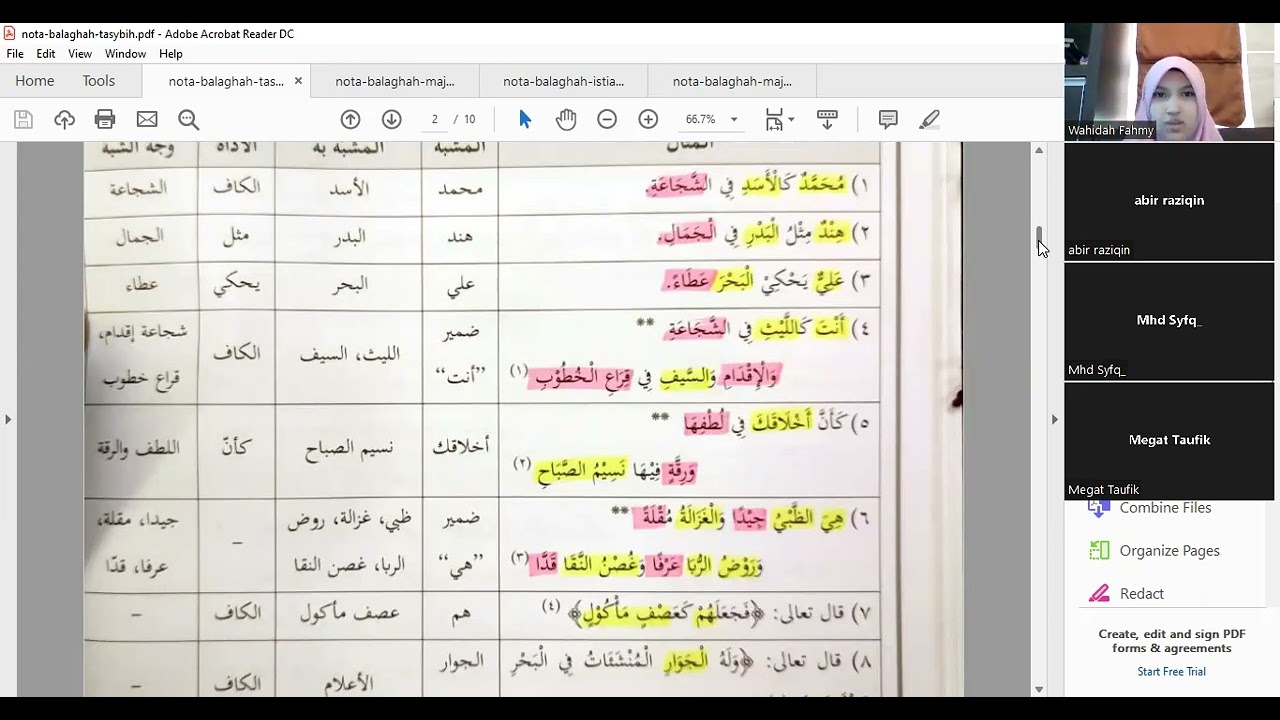 nota-balaghah-tasybih.pdf - Adobe Acrobat Reader DC
File Edit View Window Help
Home Tools nota-balaghah-tas... × nota-balaghah-maj... nota-balaghah-istia... nota-balaghah-maj...
2 / 10 66.7%
المثال المشبه المشبه به الأداة وجه الشبه
١) مُحَمَّدٌ كَالْأَسَدِ فِي الشَّجَاعَةِ. محمد الأسد الكاف الشجاعة
٢) هِنْدٌ مِثْلُ الْبَدْرِ فِي الْجَمَالِ. هند البدر مثل الجمال
٣) عَلِيٌّ يَحْكِيْ الْبَحْرَ عَطَاءً. علي البحر يحكي عطاء
٤) أَنْتَ كَاللَّيْثِ فِي الشَّجَاعَةِ **
وَالْإِقْدَامِ وَالسَّيفِ فِي قِرَاعِ الْخُطُوْبِ (١)
ضمير
"أنت"
الليث، السيف
الكاف
شجاعة إقدام،
قراع خطوب
٥) كَأَنَّ أَخْلَاقَكَ فِي لُطْفِهَا **
وَرِقَّةٍ فِيْهَا نَسِيْمُ الصَّبَاحِ (٢)
أخلاقك
نسيم الصباح
كأنّ
اللطف والرقة
٦) هِيَ الظَّبْيُ جِيْدًا وَالْغَزَالَةُ مُقْلَةً **
وَرَوْضُ الرُّبَا عَرْفًا وَغُصْنُ النَّقَا قَدًّا (٣)
ضمير
"هي"
ظبي، غزالة، روض
الربا، غصن النقا
–
جيدا، مقلة،
عرفا، قدّا
٧) قال تعالى: ﴿فَجَعَلَهُمْ كَعَصْفٍ مَأْكُوْلٍ﴾ (٤) هم عصف مأكول الكاف –
٨) قال تعالى: ﴿وَلَهُ الْجَوَارِ الْمُنْشَئَاتُ فِي الْبَحْرِ
الجوار
الأعلام
الكاف
–
Wahidah Fahmy
abir raziqin
abir raziqin
Mhd Syfq_
Mhd Syfq_
Megat Taufik
Megat Taufik
Combine Files
Organize Pages
Redact
Create, edit and sign PDF
forms & agreements
Start Free Trial